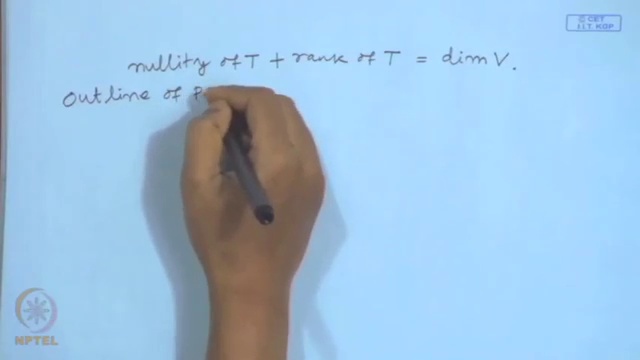 © CET
I.I.T. KGP
nullity of T + rank of T = dim V.
Outline of P
NPTEL